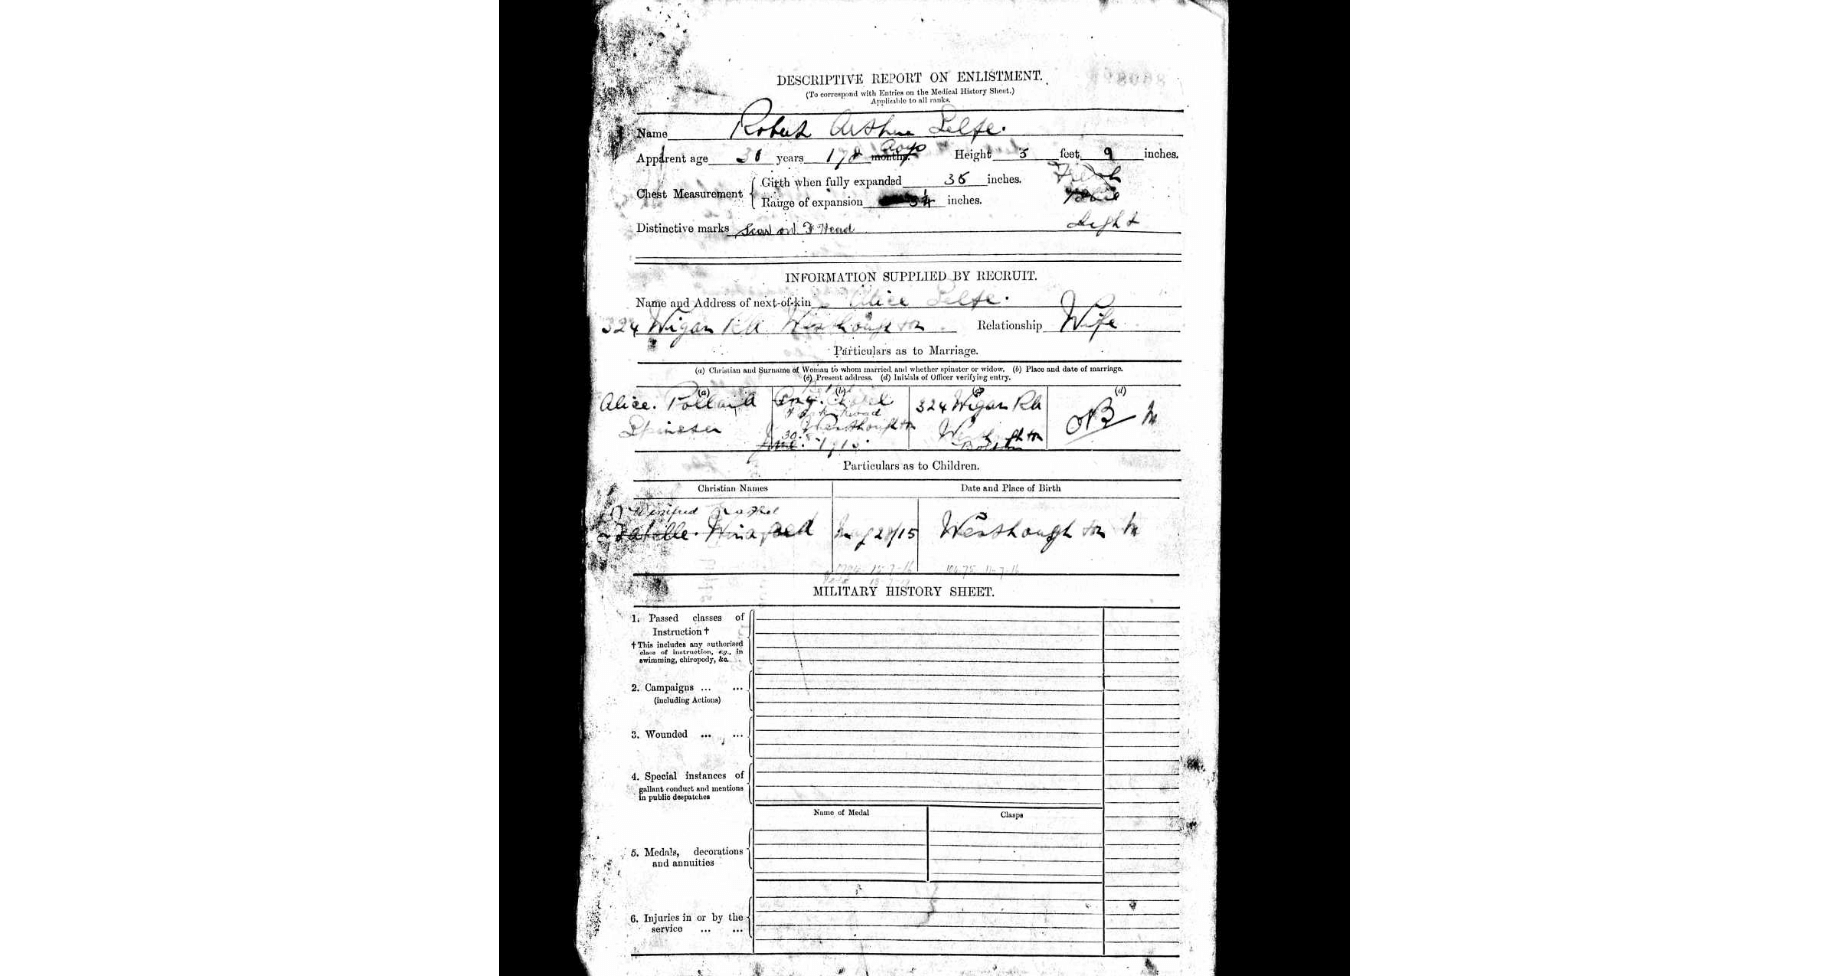 DESCRIPTIVE REPORT ON ENLISTMENT.
(To correspond with Entries on the Medical History Sheet.)
Applicable to all ranks.
Name Robert Arthur
Apparent age years months. days Height 5 feet 9 inches.
Chest Measurement
Girth when fully expanded 36 inches.
Range of expansion inches.
Distinctive marks Scar on F Head
Light
INFORMATION SUPPLIED BY RECRUIT.
Name and Address of next-of-kin Alice
324 Wigan Rd Westhoughton Relationship Wife
Particulars as to Marriage.
(a) Christian and Surname of Woman to whom married and whether spinster or widow. (b) Place and date of marriage.
(c) Present address. (d) Initials of Officer verifying entry.
(a) (b) (c) (d)
Alice. Pollard 324 Wigan Rd
Spinster Westhoughton Westhoughton
Particulars as to Children.
Christian Names Date and Place of Birth
Winifred
Winifred Westhoughton
MILITARY HISTORY SHEET.
1. Passed classes of
Instruction †
† This includes any authorised
class of instruction, e.g., in
swimming, chiropody, &c.
2. Campaigns ... ...
(including Actions)
3. Wounded ... ...
4. Special instances of
gallant conduct and mentions
in public despatches
Name of Medal Clasps
5. Medals, decorations
and annuities
6. Injuries in or by the
service ... ...